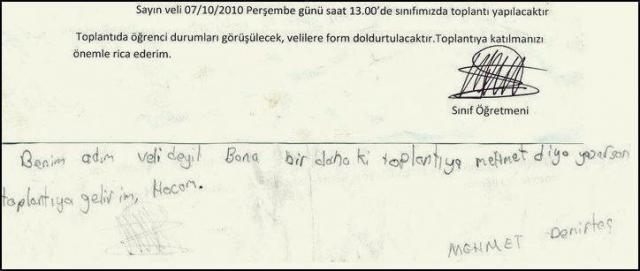 Sayın veli 07/10/2010 Perşembe günü saat 13.00'de sınıfımızda toplantı yapılacaktır
Toplantıda öğrenci durumları görüşülecek, velilere form doldurtulacaktır.Toplantıya katılmanızı
önemle rica ederim.
Sınıf Öğretmeni
Benim adım veli deyil Bana bir daha ki toplantıya mehmet diye yazarsan
toplantıya gelirim, Hocam.
MEHMET Demirtaş